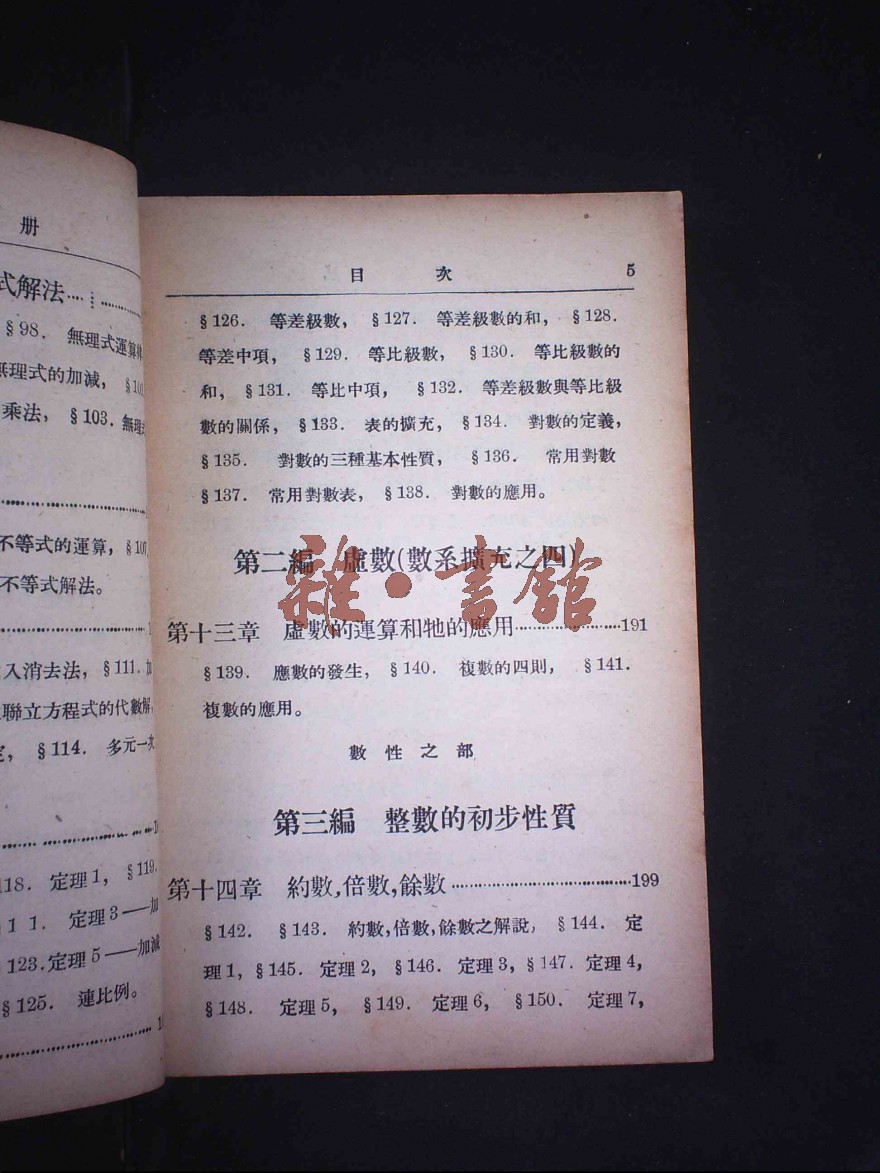 册
式解法
§98. 無理式運算
無理式的加減,
乘法, §103.
不等式的運算, §107,
不等式解法。
入消去法, §111. 加
聯立方程式的代數解,
§114. 多元一次
118. 定理1, §119.
1 1. 定理3——加
123.定理5——加減
§125. 連比例。
目 次 5
§126. 等差級數, §127. 等差級數的和, §128.
等差中項, §129. 等比級數, §130. 等比級數的
和, §131. 等比中項, §132. 等差級數與等比級
數的關係, §133. 表的擴充, §134. 對數的定義,
§135. 對數的三種基本性質, §136. 常用對數
§137. 常用對數表, §138. 對數的應用。
第二編 虛數(數系擴充之四)
第十三章 虛數的運算和牠的應用……………………191
§139. 應數的發生, §140. 複數的四則, §141.
複數的應用。
數性之部
第三編 整數的初步性質
第十四章 約數,倍數,餘數……………………………199
§142. §143. 約數,倍數,餘數之解說, §144. 定
理1, §145. 定理2, §146. 定理3, §147. 定理4,
§148. 定理5, §149. 定理6, §150. 定理7,
雜·書館